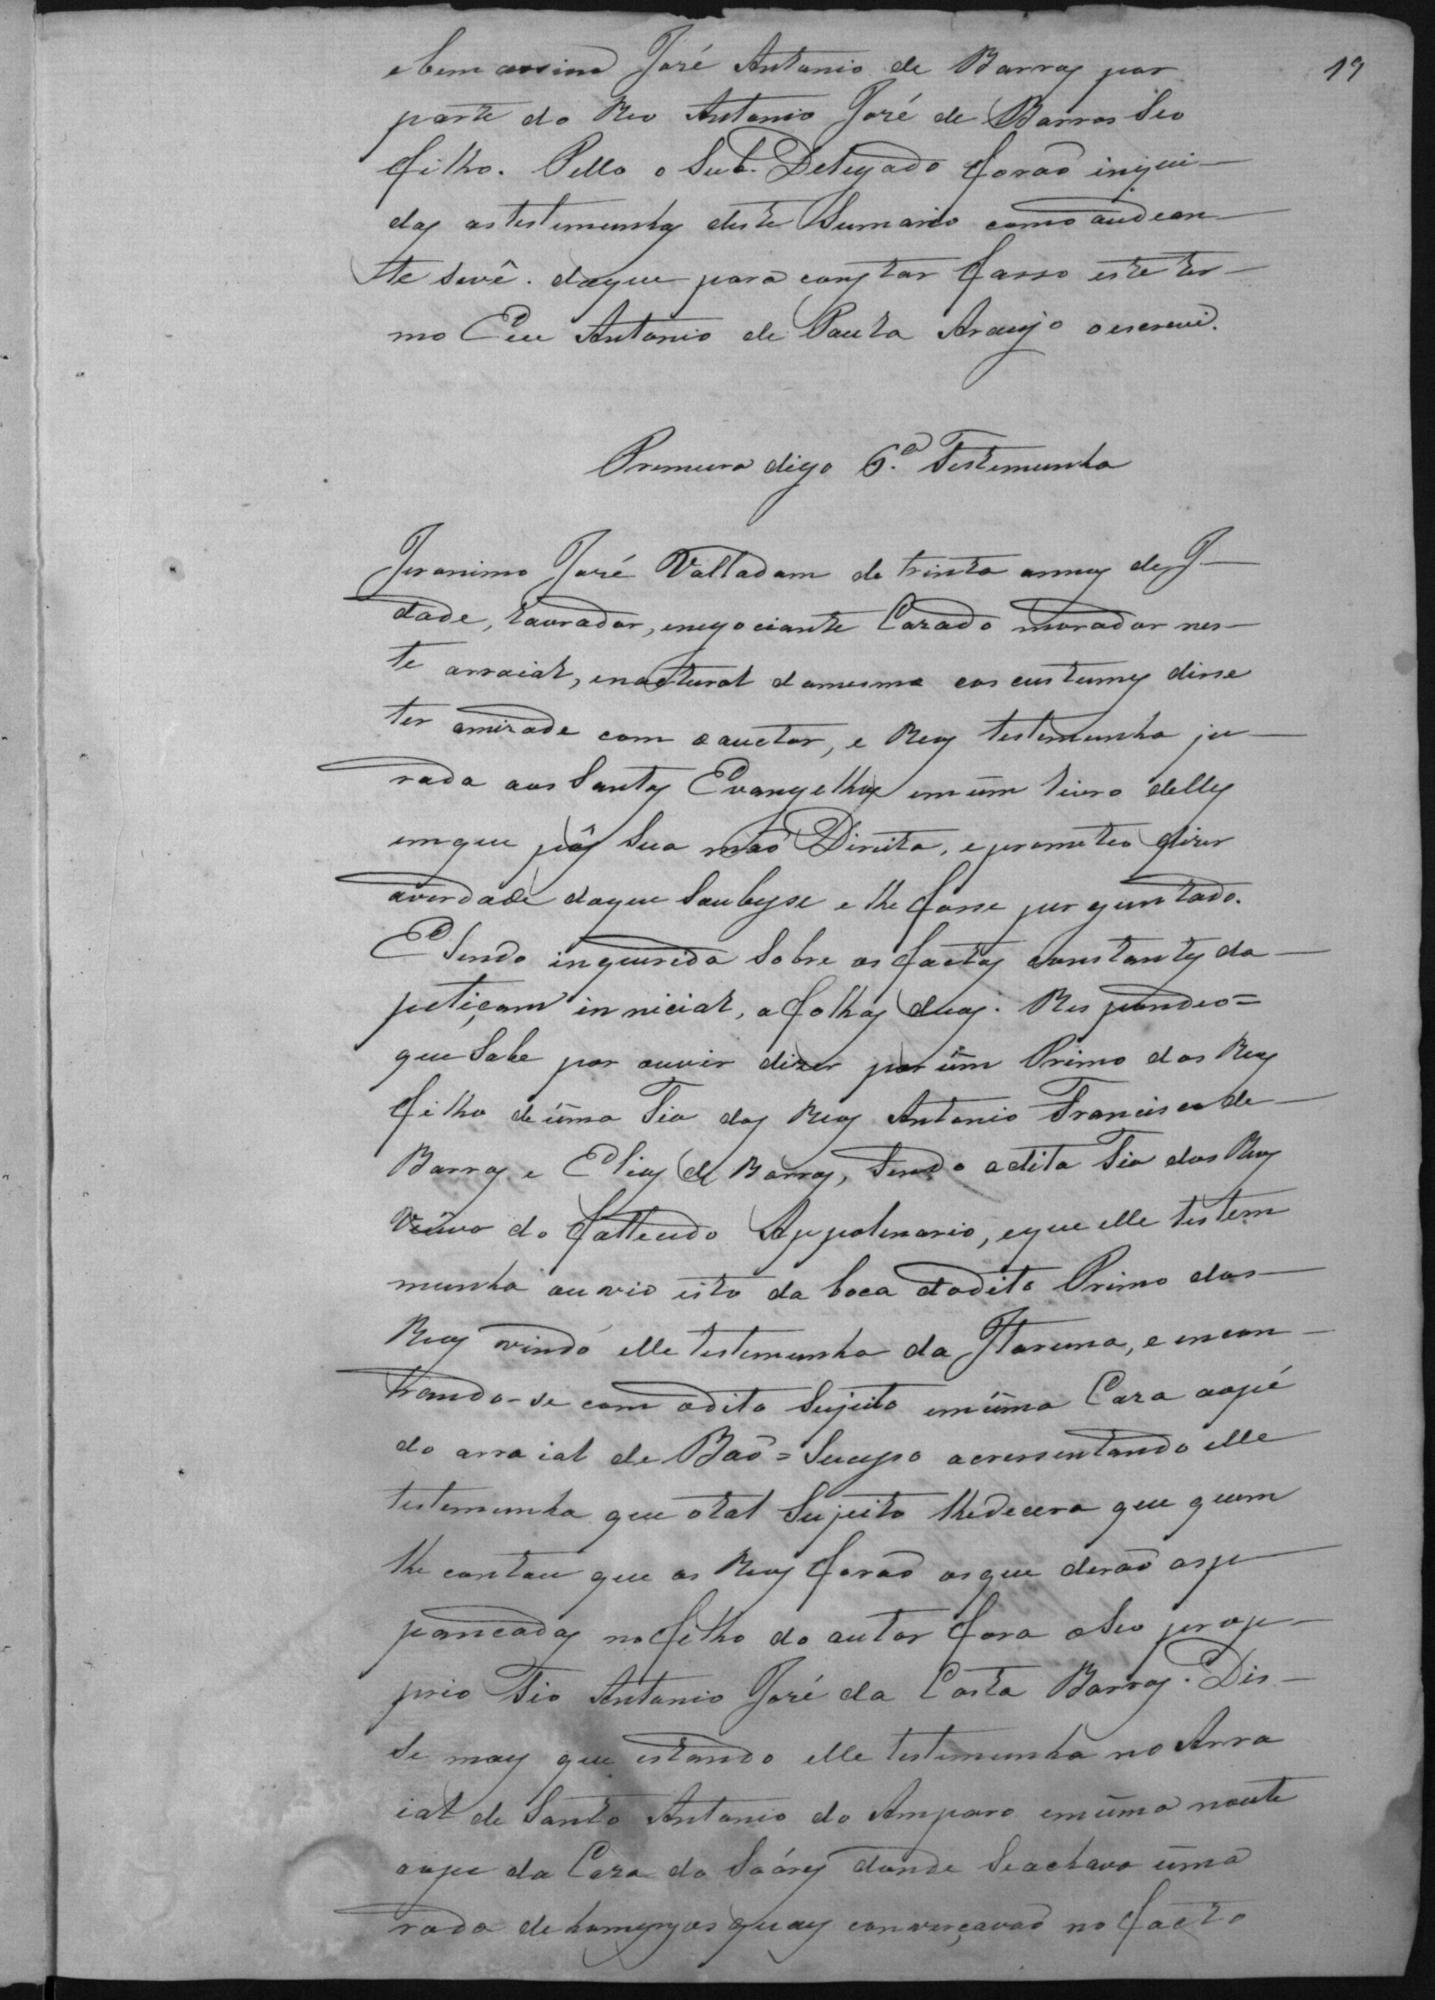 19
ebem assino José Antonio de Barros por
parte do Reo Antonio José de Barros Seo
filho. Pello o Sub. Delegado forão inqui-
das as testemunhas deste Sumario como audean-
te sevê. doque para constar fasso este ter-
mo Eeu Antonio de Paula Araujo o escrevi.
Premeira digo 6.ª Testemunha
Jeronimo José Valladam de trinta annos de I-
dade, Lavrador, enegociante Cazado morador nes-
te arraial, enactural domesmo eos custumes disse
ter amizade com o auctor, e Reos testemunha ju-
rada aos Santos Evangelhos em um livro delles
emque pôs sua mão Direita, e prometeo dizer
averdade doque Soubesse e lhe fosse perguntado.
E Sendo inquirido Sobre os factos constantes da
petiçam innicial, a folhas duas. Respondeo=
que Sabe por ouvir dizer por um Primo dos Reos
filho de uma Tia dos Reos Antonio Francisco de
Barros e Elias de Barros, sendo adita Tia dos Reos
Veuva do fallecido Appolenario, eque elle testem
munha ouvio isto da boca dodito Primo dos
Reos vindo elle testemunha da Itaruna, e encon
trando-se com odito Sujeito em uma Caza aopé
do arraial de Bão=Sucesso acressentando elle
testemunha que otal Sujeito lhedecera que quem
lhe contou que os Reos forão osque derão asp
pancadas no filho do autor fora oSeo prop-
prio Tio Antonio José da Costa Barros. Dis-
se mais que estando elle testemunha no Arra
ial de Santo Antonio do Amparo em uma noute
aope da Caza do Soáres donde Seachava uma
roda de homens os quais converçavão no facto